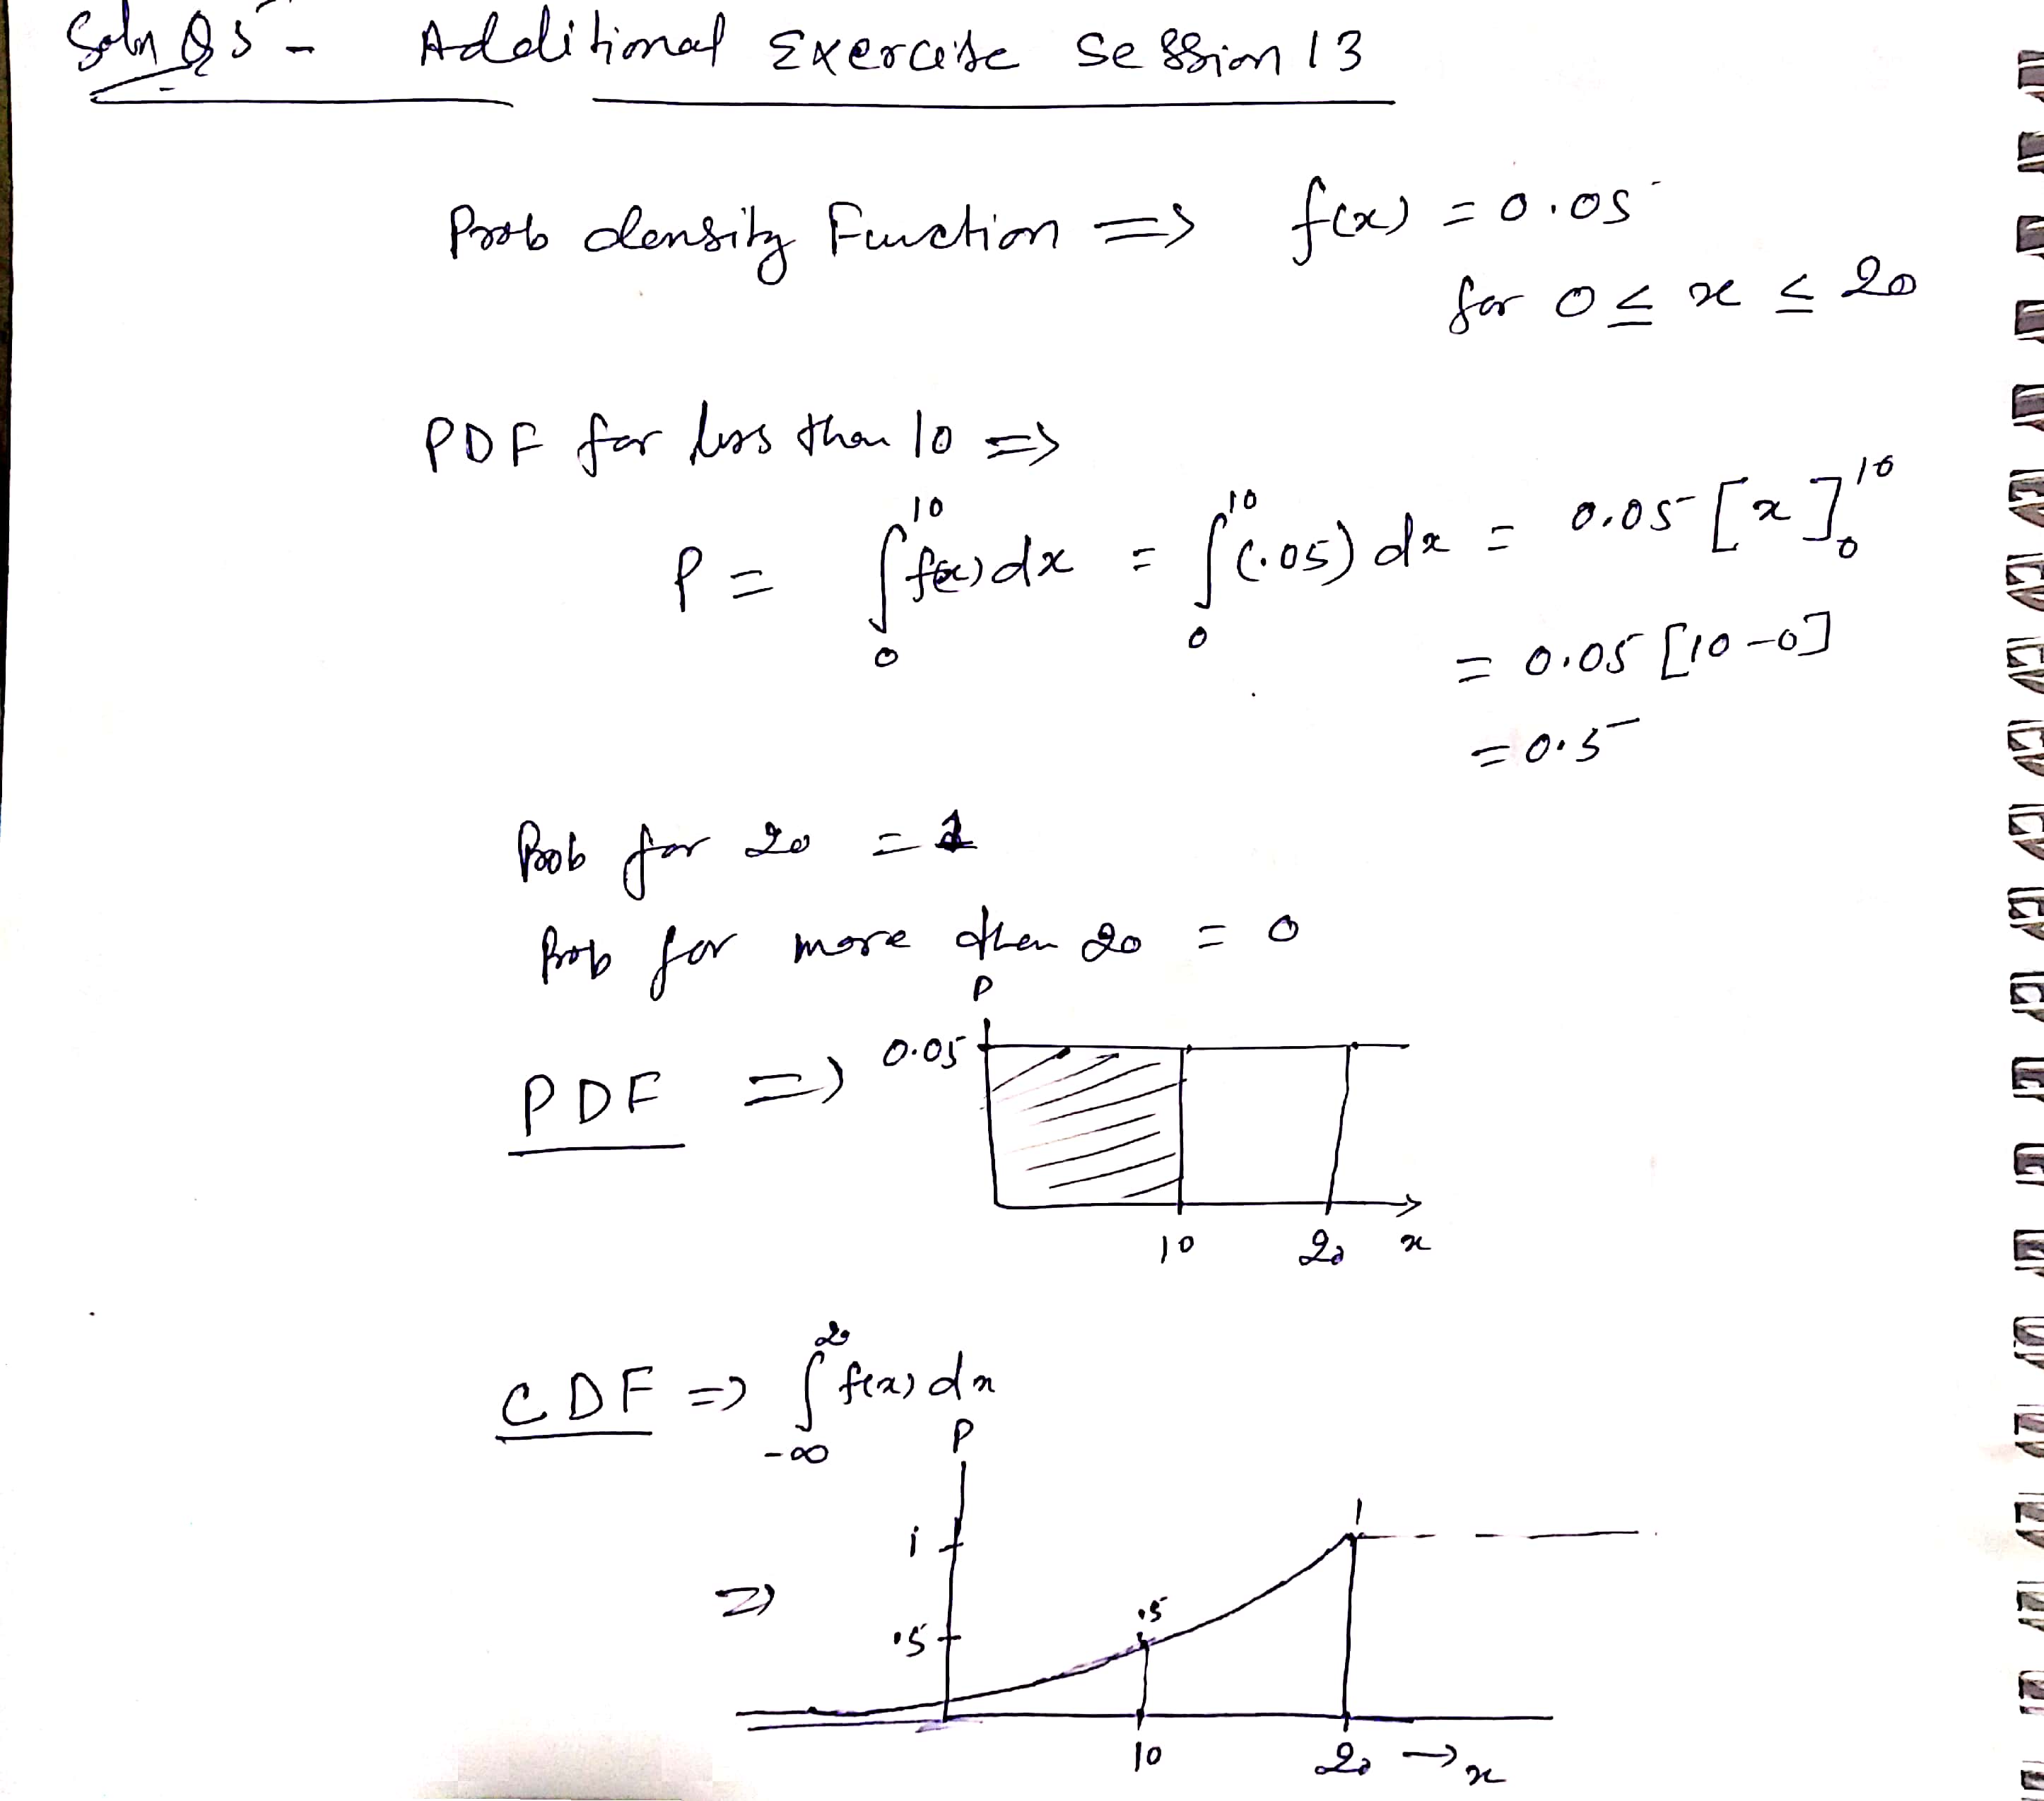 Soln Q5 - Additional Exercise Session 13
Prob density Function => f(x) = 0.05
for 0 ≤ x ≤ 20
PDF for less than 10 =>
P = ∫₀¹⁰ f(x) dx = ∫₀¹⁰ (.05) dx = 0.05 [x]₀¹⁰
= 0.05 [10-0]
= 0.5
Prob for 20 = 1
Prob for more then 20 = 0
P
PDF => 0.05
10 20 x
CDF => ∫₋∞²⁰ f(x) dx
P
1
=>
.5 .5
10 20 → x